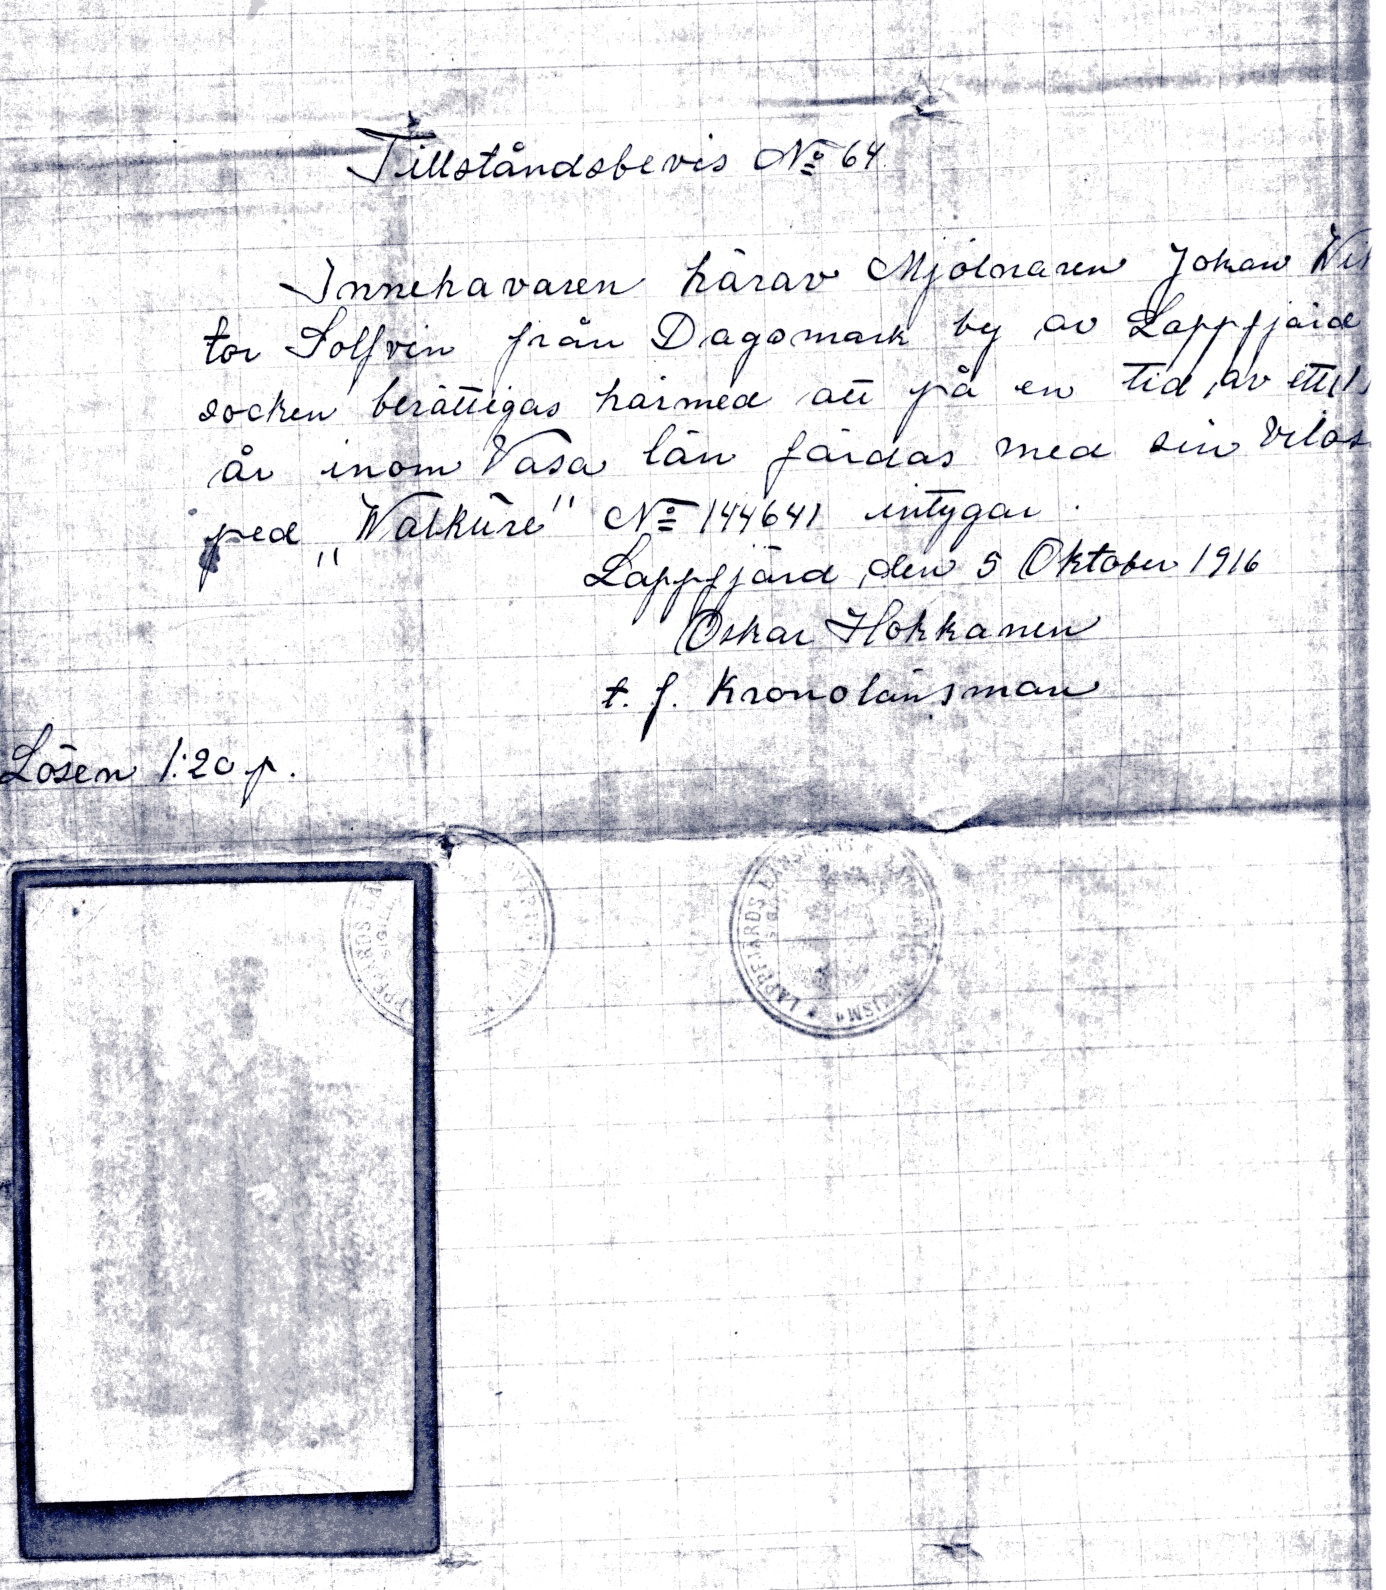 Tillståndsbevis № 64.
Innehavaren härav Mjölnaren Johan Vik
tor Solfvin från Dagsmark by av Lappfjärd
socken berättigas härmed att på en tid av ett (1)
år inom Vasa län färdas med sin velos
ped „Walküre" № 144641 intygar.
Lappfjärd, den 5 Oktober 1916
Oskar Hokkanen
t. f. Kronolänsman
Lösen 1:20 p.
LAPPFJÄRDS
LAPPFJÄRDS LÄNSMANS